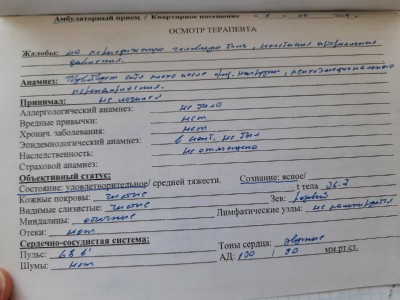 Амбулаторный прием / Квартирное посещение
ОСМОТР ТЕРАПЕВТА
Жалобы: на периодическую головную боль, колебания артериального
давления.
Анамнез: чувствует себя плохо после физ. нагрузки, психоэмоционального
перенапряжения.
Принимал: не лечился
Аллергологический анамнез: не было
Вредные привычки: нет
Хронич. заболевания: нет
Эпидемиологический анамнез: в конт. не был
Наследственность: не отмечено
Страховой анамнез:
Объективный статус:
Состояние: удовлетворительное/ средней тяжести. Сознание: ясное/
t тела 36.7
Кожные покровы: чистые
Зев:
Видимые слизистые: чистые
Лимфатические узлы: не пальпируются
Миндалины: обычные
Отеки: нет
Сердечно-сосудистая система:
Тоны сердца:
Пульс: 68
АД: 130 / 90 мм.рт.ст.
Шумы: нет